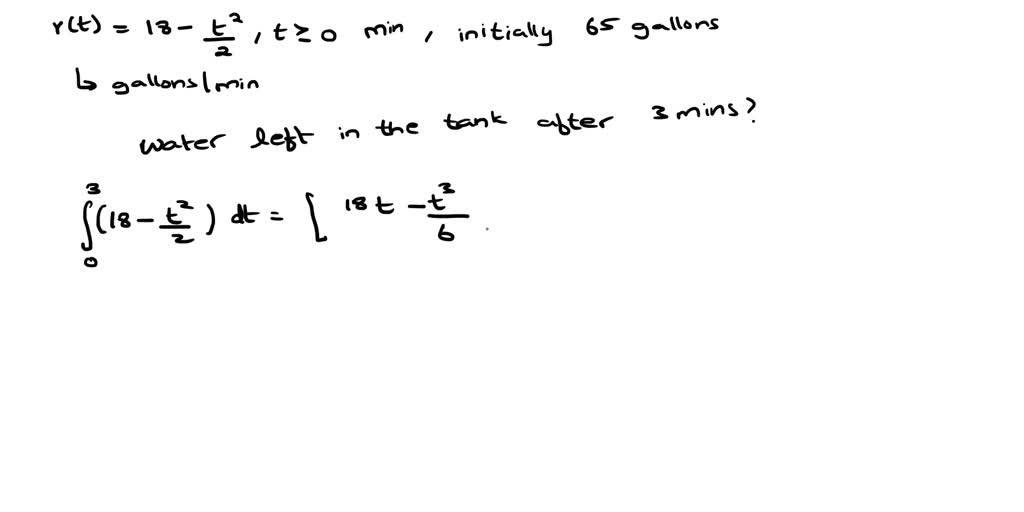 r(t) = 18 - t²/2 , t ≥ 0 min , initially 65 gallons
↳ gallons/min
water left in the tank after 3 mins?
∫₀³ (18 - t²/2) dt = [ 18t - t³/6